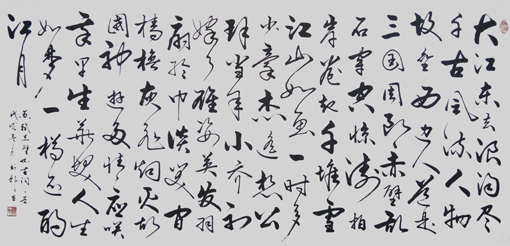 大江东去浪淘尽
千古风流人物
故垒西边人道是
三国周郎赤壁乱
石穿空惊涛拍
岸卷起千堆雪
江山如画一时多
少豪杰遥想公
瑾当年小乔初
嫁了雄姿英发羽
扇纶巾谈笑间
樯橹灰飞烟灭故
國神游多情应笑
我早生华发人生
如梦一樽还酹
江月
苏轼赤壁怀古词一首